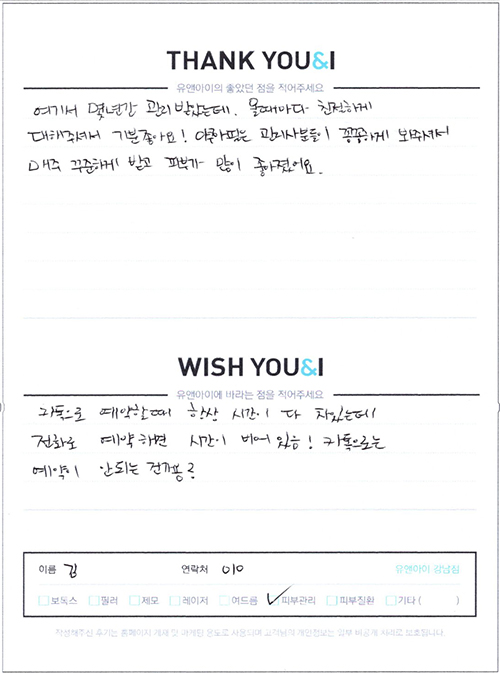 THANK YOU&I
유앤아이의 좋았던 점을 적어주세요
여기서 몇년간 관리 받았는데. 올때마다 친절하게
대해주셔서 기분좋아요! 압출하는 관리사분들이 꼼꼼하게 봐주셔서
매주 꾸준하게 받고 피부가 많이 좋아졌어요.
WISH YOU&I
유앤아이에 바라는 점을 적어주세요
카톡으로 예약할때 항상 시간이 다 차있는데
전화로 예약하면 시간이 비어있음! 카톡으로는
예약이 안되는 건가용?
이름 김 연락처 010 유앤아이 강남점
보톡스 필러 제모 레이저 여드름 피부관리 피부질환 기타 ( )
작성해주신 후기는 홈페이지 게재 및 마케팅 용도로 사용되며 고객님의 개인정보는 일부 비공개 처리로 보호됩니다.